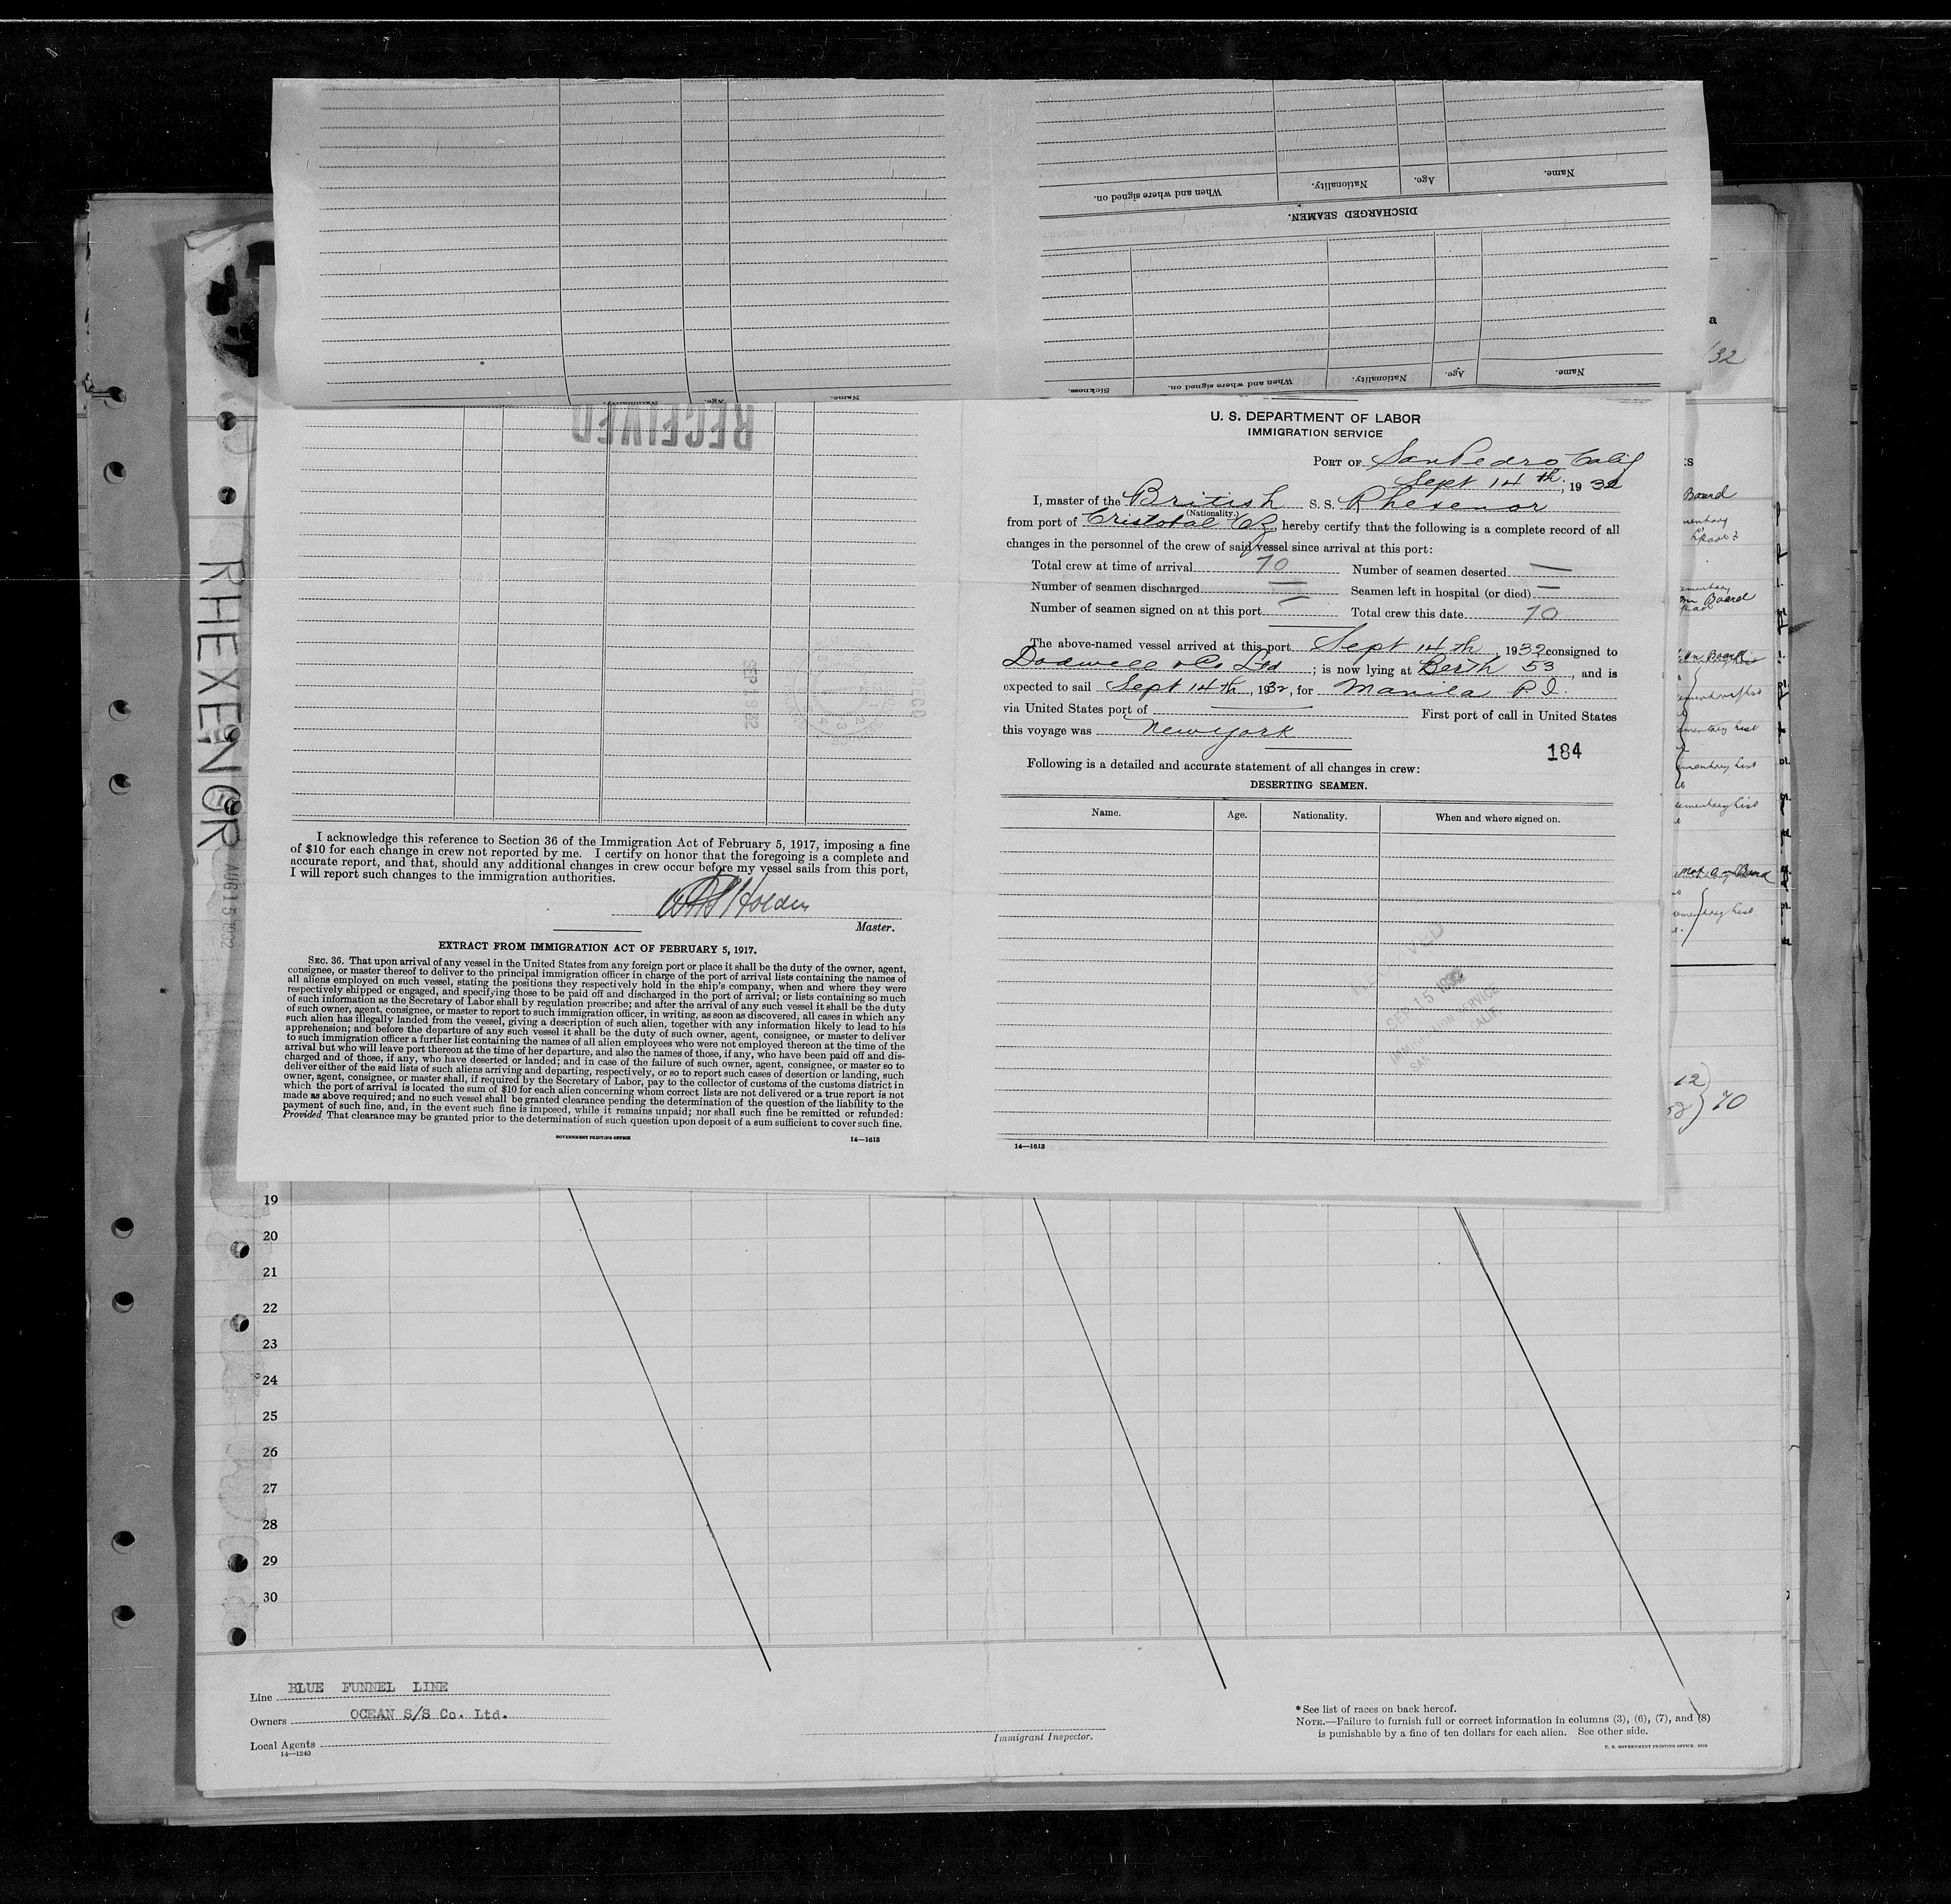 Name. Age. Nationality. When and where signed on.
DISCHARGED SEAMEN.
Name. Age. Nationality. When and where signed on. Sickness.
Name. Age. Nationality.
RECEIVED
RHEXENOR
AUG 15 1932
U. S. DEPARTMENT OF LABOR
IMMIGRATION SERVICE
PORT OF San Pedro Calif
Sept 14 th, 1932
I, master of the British S. S. Rhexenor
(Nationality.)
from port of Cristobal CZ, hereby certify that the following is a complete record of all
changes in the personnel of the crew of said vessel since arrival at this port:
Total crew at time of arrival 70 Number of seamen deserted —
Number of seamen discharged — Seamen left in hospital (or died) —
Number of seamen signed on at this port — Total crew this date 70
The above-named vessel arrived at this port Sept 14 th, 1932 consigned to
Dodwell & Co Ltd; is now lying at Berth 53, and is
expected to sail Sept 14th, 1932, for Manila P. I.
via United States port of — First port of call in United States
this voyage was New York
184
Following is a detailed and accurate statement of all changes in crew:
DESERTING SEAMEN.
Name. Age. Nationality. When and where signed on.
SEP 15 1932
IMMIGRATION SERVICE
CALIF.
14—1613
I acknowledge this reference to Section 36 of the Immigration Act of February 5, 1917, imposing a fine
of $10 for each change in crew not reported by me. I certify on honor that the foregoing is a complete and
accurate report, and that, should any additional changes in crew occur before my vessel sails from this port,
I will report such changes to the immigration authorities.
Holden
Master.
EXTRACT FROM IMMIGRATION ACT OF FEBRUARY 5, 1917.
SEC. 36. That upon arrival of any vessel in the United States from any foreign port or place it shall be the duty of the owner, agent,
consignee, or master thereof to deliver to the principal immigration officer in charge of the port of arrival lists containing the names of
all aliens employed on such vessel, stating the positions they respectively hold in the ship's company, when and where they were
respectively shipped or engaged, and specifying those to be paid off and discharged in the port of arrival; or lists containing so much
of such information as the Secretary of Labor shall by regulation prescribe; and after the arrival of any such vessel it shall be the duty
of such owner, agent, consignee, or master to report to such immigration officer, in writing, as soon as discovered, all cases in which any
such alien has illegally landed from the vessel, giving a description of such alien, together with any information likely to lead to his
apprehension; and before the departure of any such vessel it shall be the duty of such owner, agent, consignee, or master to deliver
to such immigration officer a further list containing the names of all alien employees who were not employed thereon at the time of the
arrival but who will leave port thereon at the time of her departure, and also the names of those, if any, who have been paid off and dis-
charged and of those, if any, who have deserted or landed; and in case of the failure of such owner, agent, consignee, or master so to
deliver either of the said lists of such aliens arriving and departing, respectively, or so to report such cases of desertion or landing, such
owner, agent, consignee, or master shall, if required by the Secretary of Labor, pay to the collector of customs of the customs district in
which the port of arrival is located the sum of $10 for each alien concerning whom correct lists are not delivered or a true report is not
made as above required; and no such vessel shall be granted clearance pending the determination of the question of the liability to the
payment of such fine, and, in the event such fine is imposed, while it remains unpaid; nor shall such fine be remitted or refunded:
Provided That clearance may be granted prior to the determination of such question upon deposit of a sum sufficient to cover such fine.
GOVERNMENT PRINTING OFFICE 14—1613
12
70
19
20
21
22
23
24
25
26
27
28
29
30
Line BLUE FUNNEL LINE
Owners OCEAN S/S Co. Ltd.
Local Agents
14—1240
Immigrant Inspector.
* See list of races on back hereof.
NOTE.—Failure to furnish full or correct information in columns (3), (6), (7), and (8)
is punishable by a fine of ten dollars for each alien. See other side.